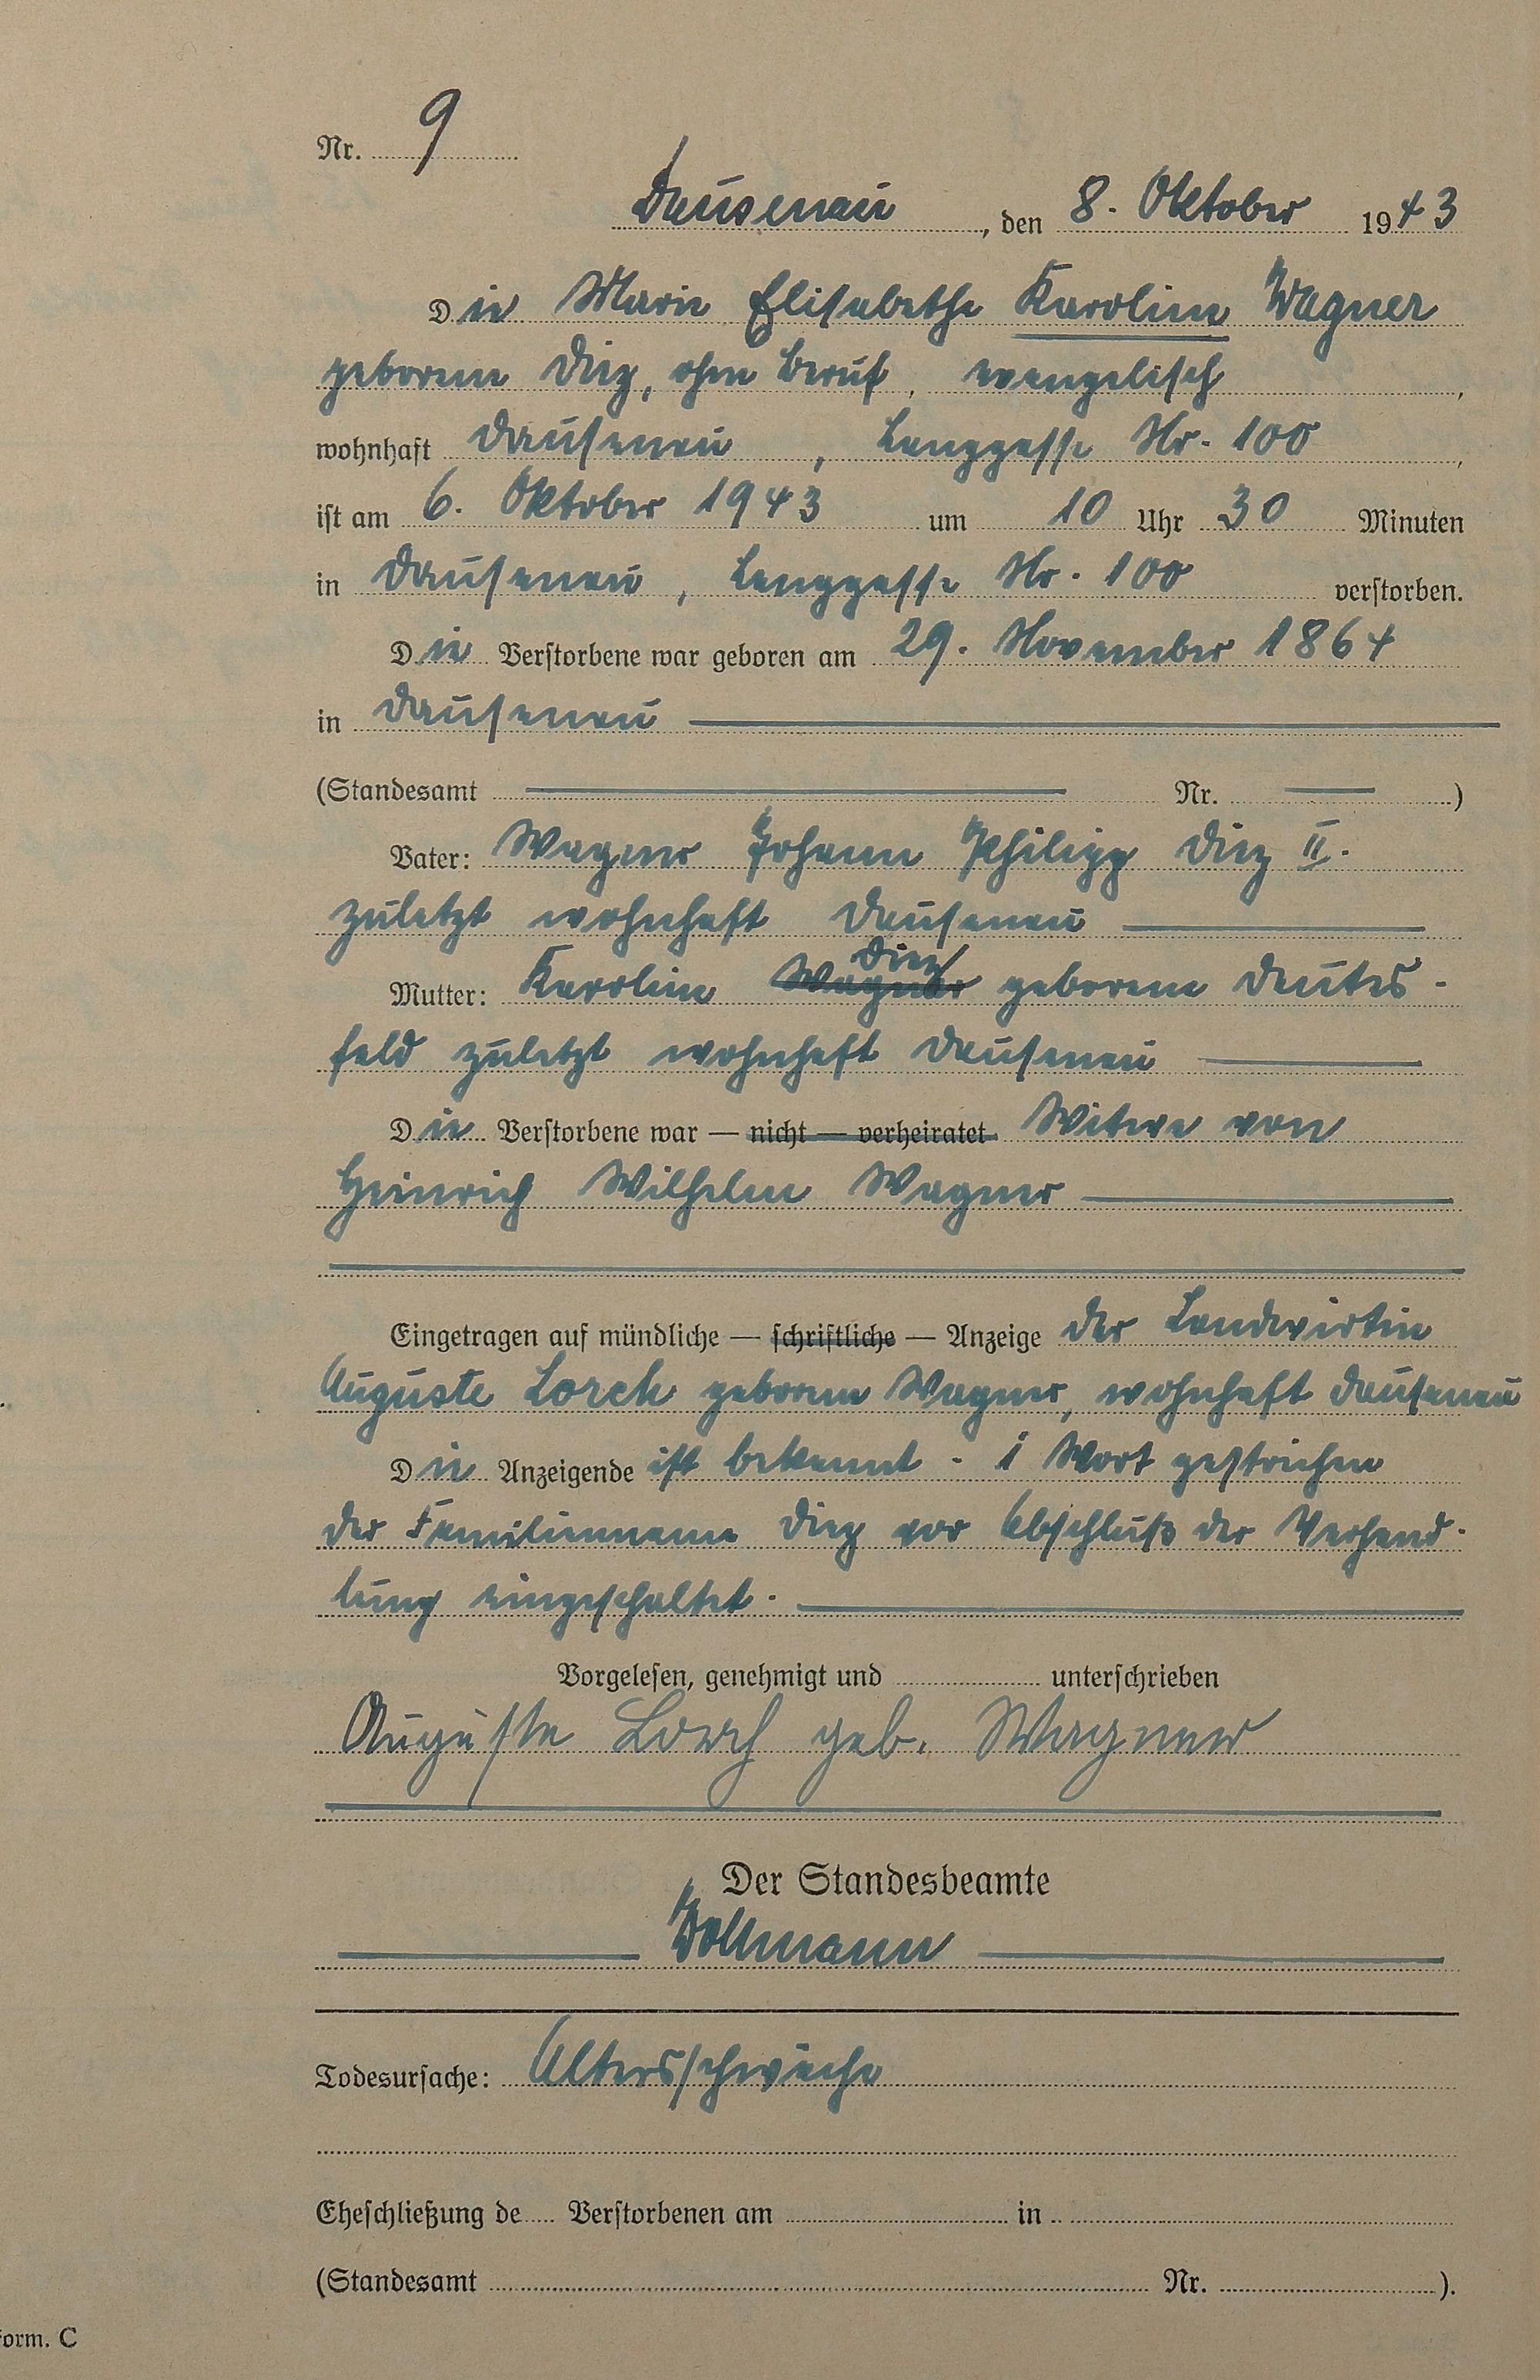 Nr. 9
Dausenau, den 8. Oktober 1943
Die Marie Elisabethe Karoline Wagner
geborene Diez, ohne Beruf, evangelisch,
wohnhaft Dausenau, Langgasse Nr. 100,
ist am 6. Oktober 1943 um 10 Uhr 30 Minuten
in Dausenau, Langgasse Nr. 100 verstorben.
Die Verstorbene war geboren am 29. November 1864
in Dausenau
(Standesamt Nr. )
Vater: Wagner Johann Philipp Diez II.
zuletzt wohnhaft Dausenau
Diez
Mutter: Karoline Wagner geborene Deutes-
feld zuletzt wohnhaft Dausenau
Die Verstorbene war — nicht — verheiratet Witwe von
Heinrich Wilhelm Wagner
Eingetragen auf mündliche — schriftliche — Anzeige der Landwirtin
Auguste Lorch geborene Wagner, wohnhaft Dausenau
Die Anzeigende ist bekannt. 1 Wort gestrichen
der Familienname Diez vor Abschluß der Verhand-
lung eingeschaltet.
Vorgelesen, genehmigt und unterschrieben
Auguste Lorch geb. Wagner
Der Standesbeamte
Todesursache: Altersschwäche
Eheschließung de Verstorbenen am in
(Standesamt Nr. ).
orm. C